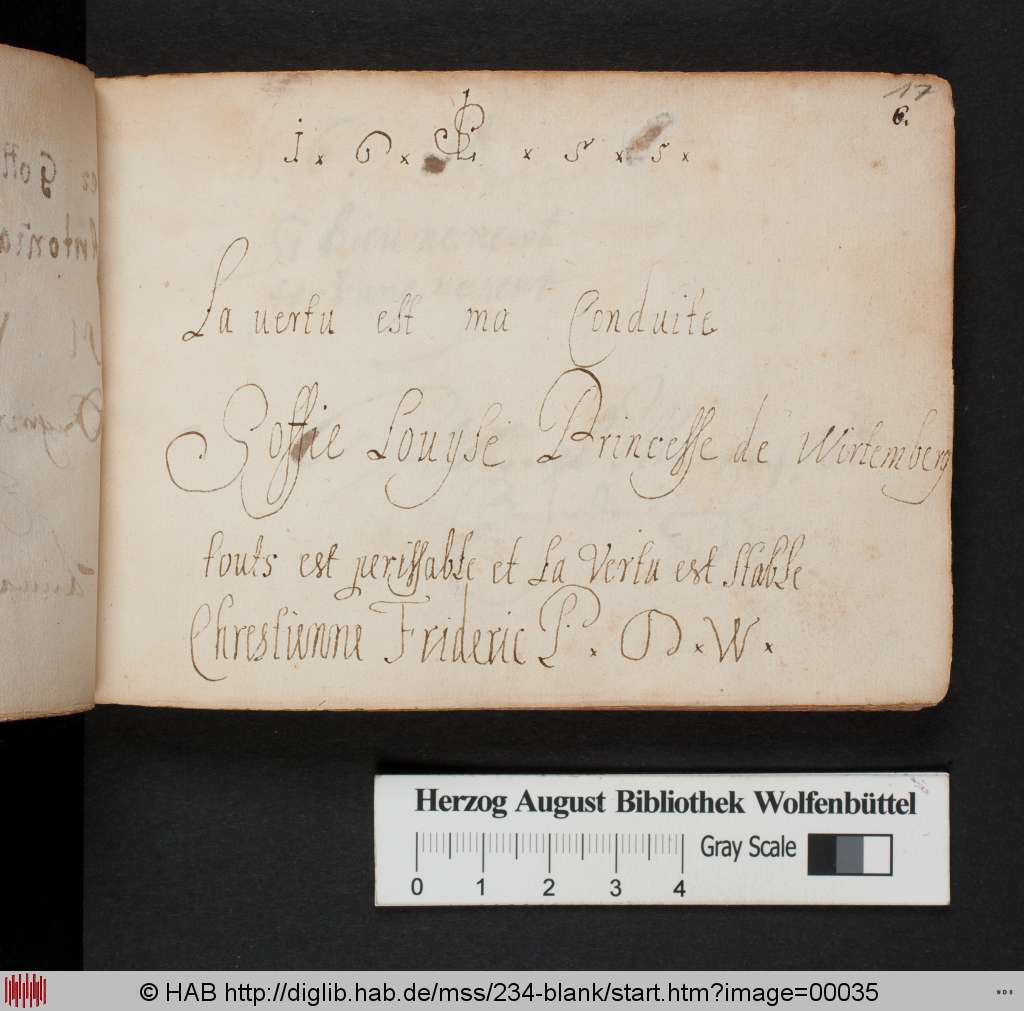 17
6.
1 × 6 × × 5 × 5 ×
La vertu est ma Conduite
Soffie Louyse Princesse de Wirtemberg
touts est perissable et La Vertu est Stable
Chrestienne Frideric P × D × W ×
Herzog August Bibliothek Wolfenbüttel
Gray Scale
0 1 2 3 4
© HAB http://diglib.hab.de/mss/234-blank/start.htm?image=00035